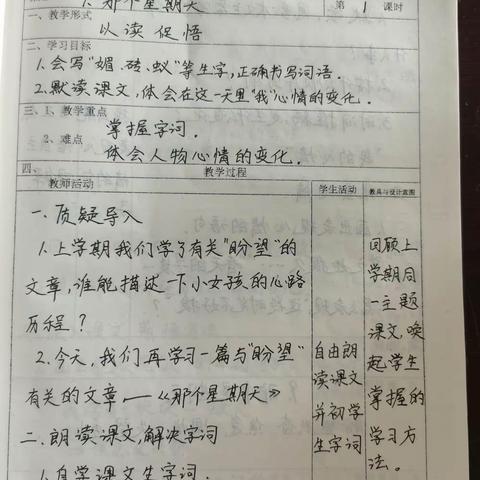 1.那个星期天
第 1 课时
一、教学形式
以读促悟
二、学习目标
1.会写“媚、砖、蚁”等生字,正确书写词语。
2.默读课文,体会在这一天里“我”心情的变化。
三、1、教学重点
掌握字词.
2、难点
体会人物心情的变化.
四、
教学过程
教师活动
学生活动
教具与设计意图
一、质疑导入
1.上学期我们学了有关“盼望”的
文章,谁能描述一下小女孩的心路
历程?
2.今天,我们再学习一篇与“盼望”
有关的文章——《那个星期天》
二.朗读课文,解决字词
1.自学课文生字词.
自由朗
读课文
并初学
生字词
回顾上
学期同
一主题
课文,唤
起学生
掌握的
学习方
法。